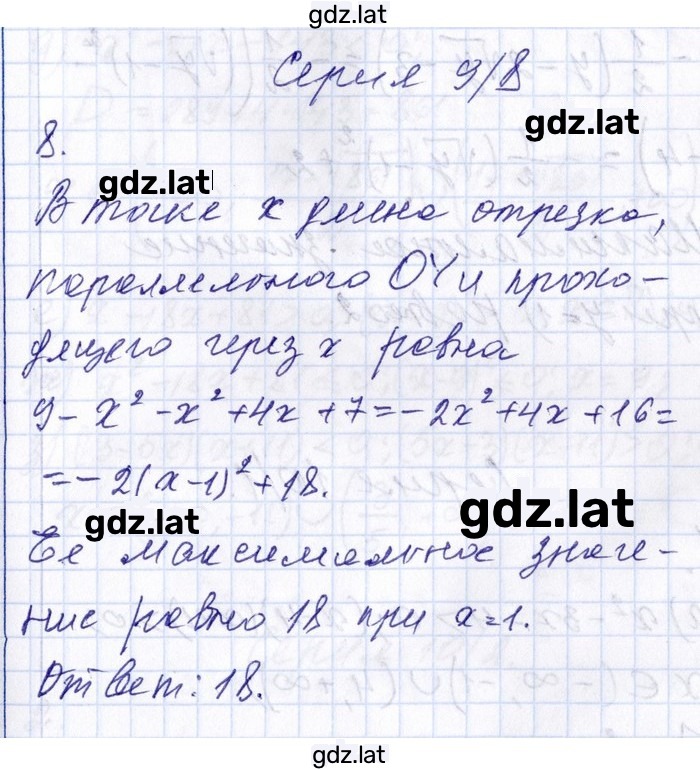 gdz.lat
Серия 9/8
gdz.lat
8.
gdz.lat
В точке x длина отрезка,
параллельного OY и прохо-
дящего через x равна
9 - x² - x² + 4x + 7 = - 2x² + 4x + 16 =
= - 2(x - 1)² + 18.
gdz.lat
gdz.lat
Её максимальное значе-
ние равно 18 при x = 1.
Ответ: 18.
gdz.lat